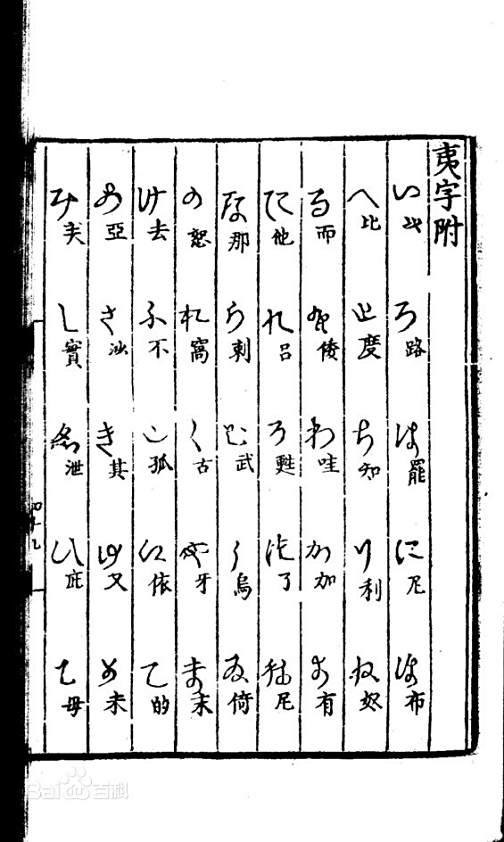 夷字附
い ろ路 は罷 に尼 ほ布
へ比 と度 ち知 り利 ぬ奴
る而 を倭 わ哇 か加 よ有
た他 れ呂 そ甦 つ了 ね尼
な那 ら剌 む武 う烏 ゐ倚
の お窩 く古 や牙 ま末
け去 ふ不 こ孤 え依 て的
あ亞 さ沙 き其 ゆ又 め未
み し實 ゑ泄 ひ庇 も母
Bai百科